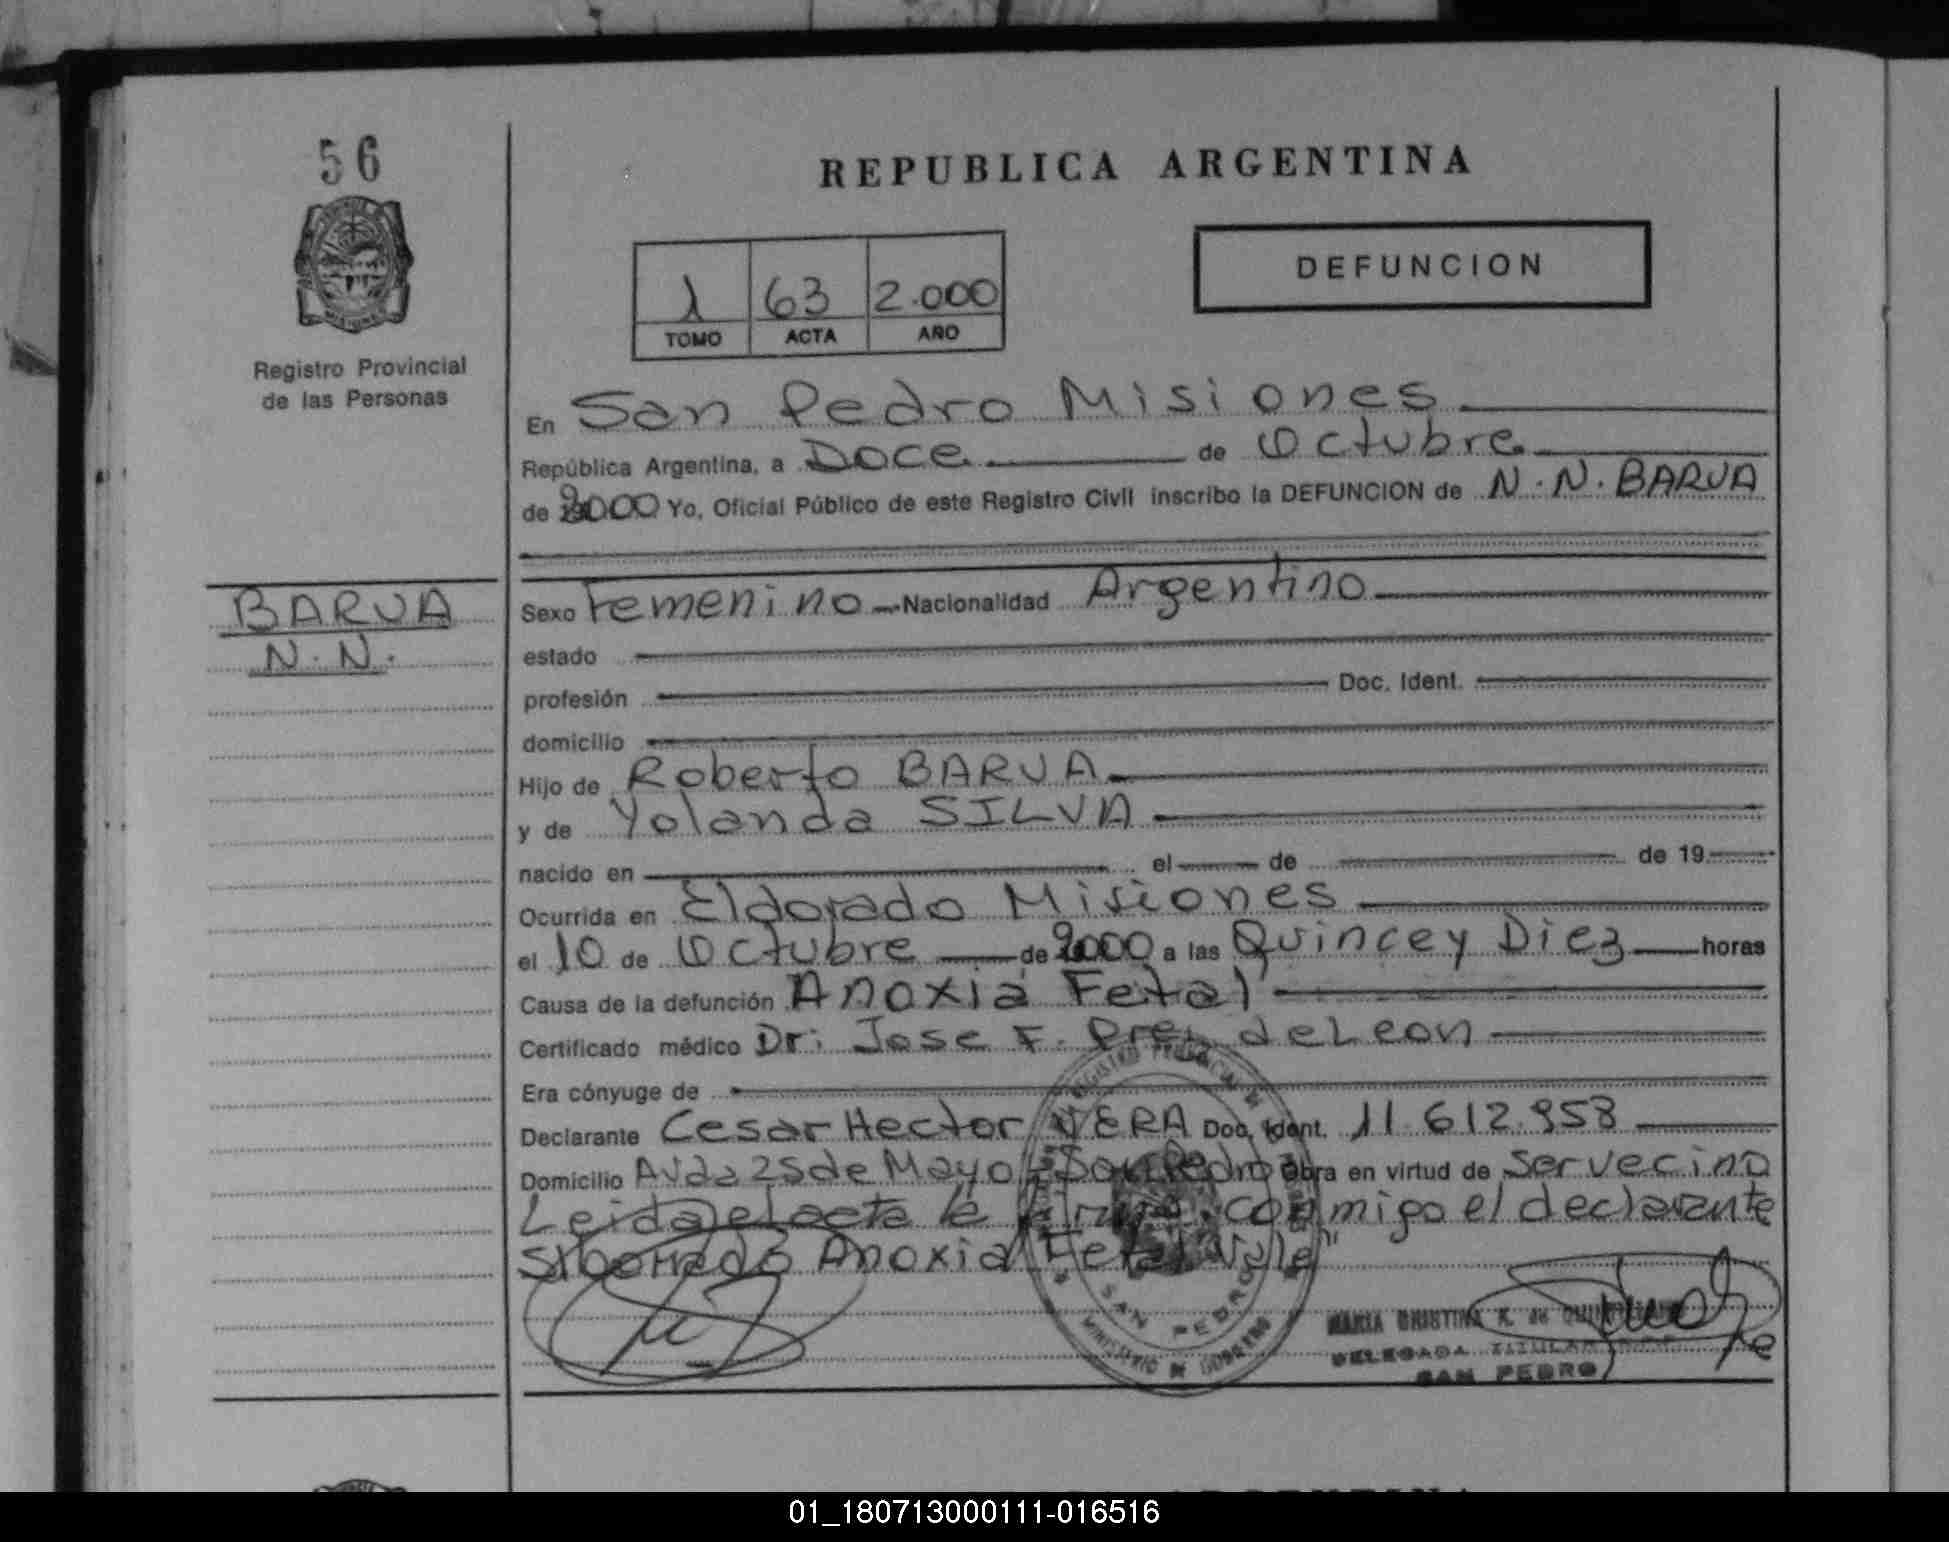 56
PROVINCIA DE
MISIONES
Registro Provincial
de las Personas
BARUA
N. N.
REPUBLICA ARGENTINA
1 63 2.000
TOMO ACTA AÑO
DEFUNCION
En San Pedro Misiones
República Argentina, a Doce de Octubre
de 2000 Yo, Oficial Público de este Registro Civil inscribo la DEFUNCION de N. N. BARUA
Sexo Femenino Nacionalidad Argentino
estado
profesión Doc. Ident.
domicilio
Hijo de Roberto BARUA
y de Yolanda SILVA
nacido en el de de 19
Ocurrida en Eldorado Misiones
el 10 de Octubre de 2000 a las Quince y Diez horas
Causa de la defunción Anoxia Fetal
Certificado médico Dr: Jose F. de Leon
Era cónyuge de
Declarante Cesar Hector VERA Doc. Ident. 11.612.958
Domicilio Avda 25 de Mayo - San Pedro Obra en virtud de ser vecino
Leida el acta la firma conmigo el declarante
S/borrado Anoxia Fetal Vale"
REGISTRO PROVINCIAL
SAN PEDRO
MINISTERIO DE GOBIERNO
MARIA CRISTINA K. de
DELEGADA TITULAR
SAN PEDRO
01_180713000111-016516